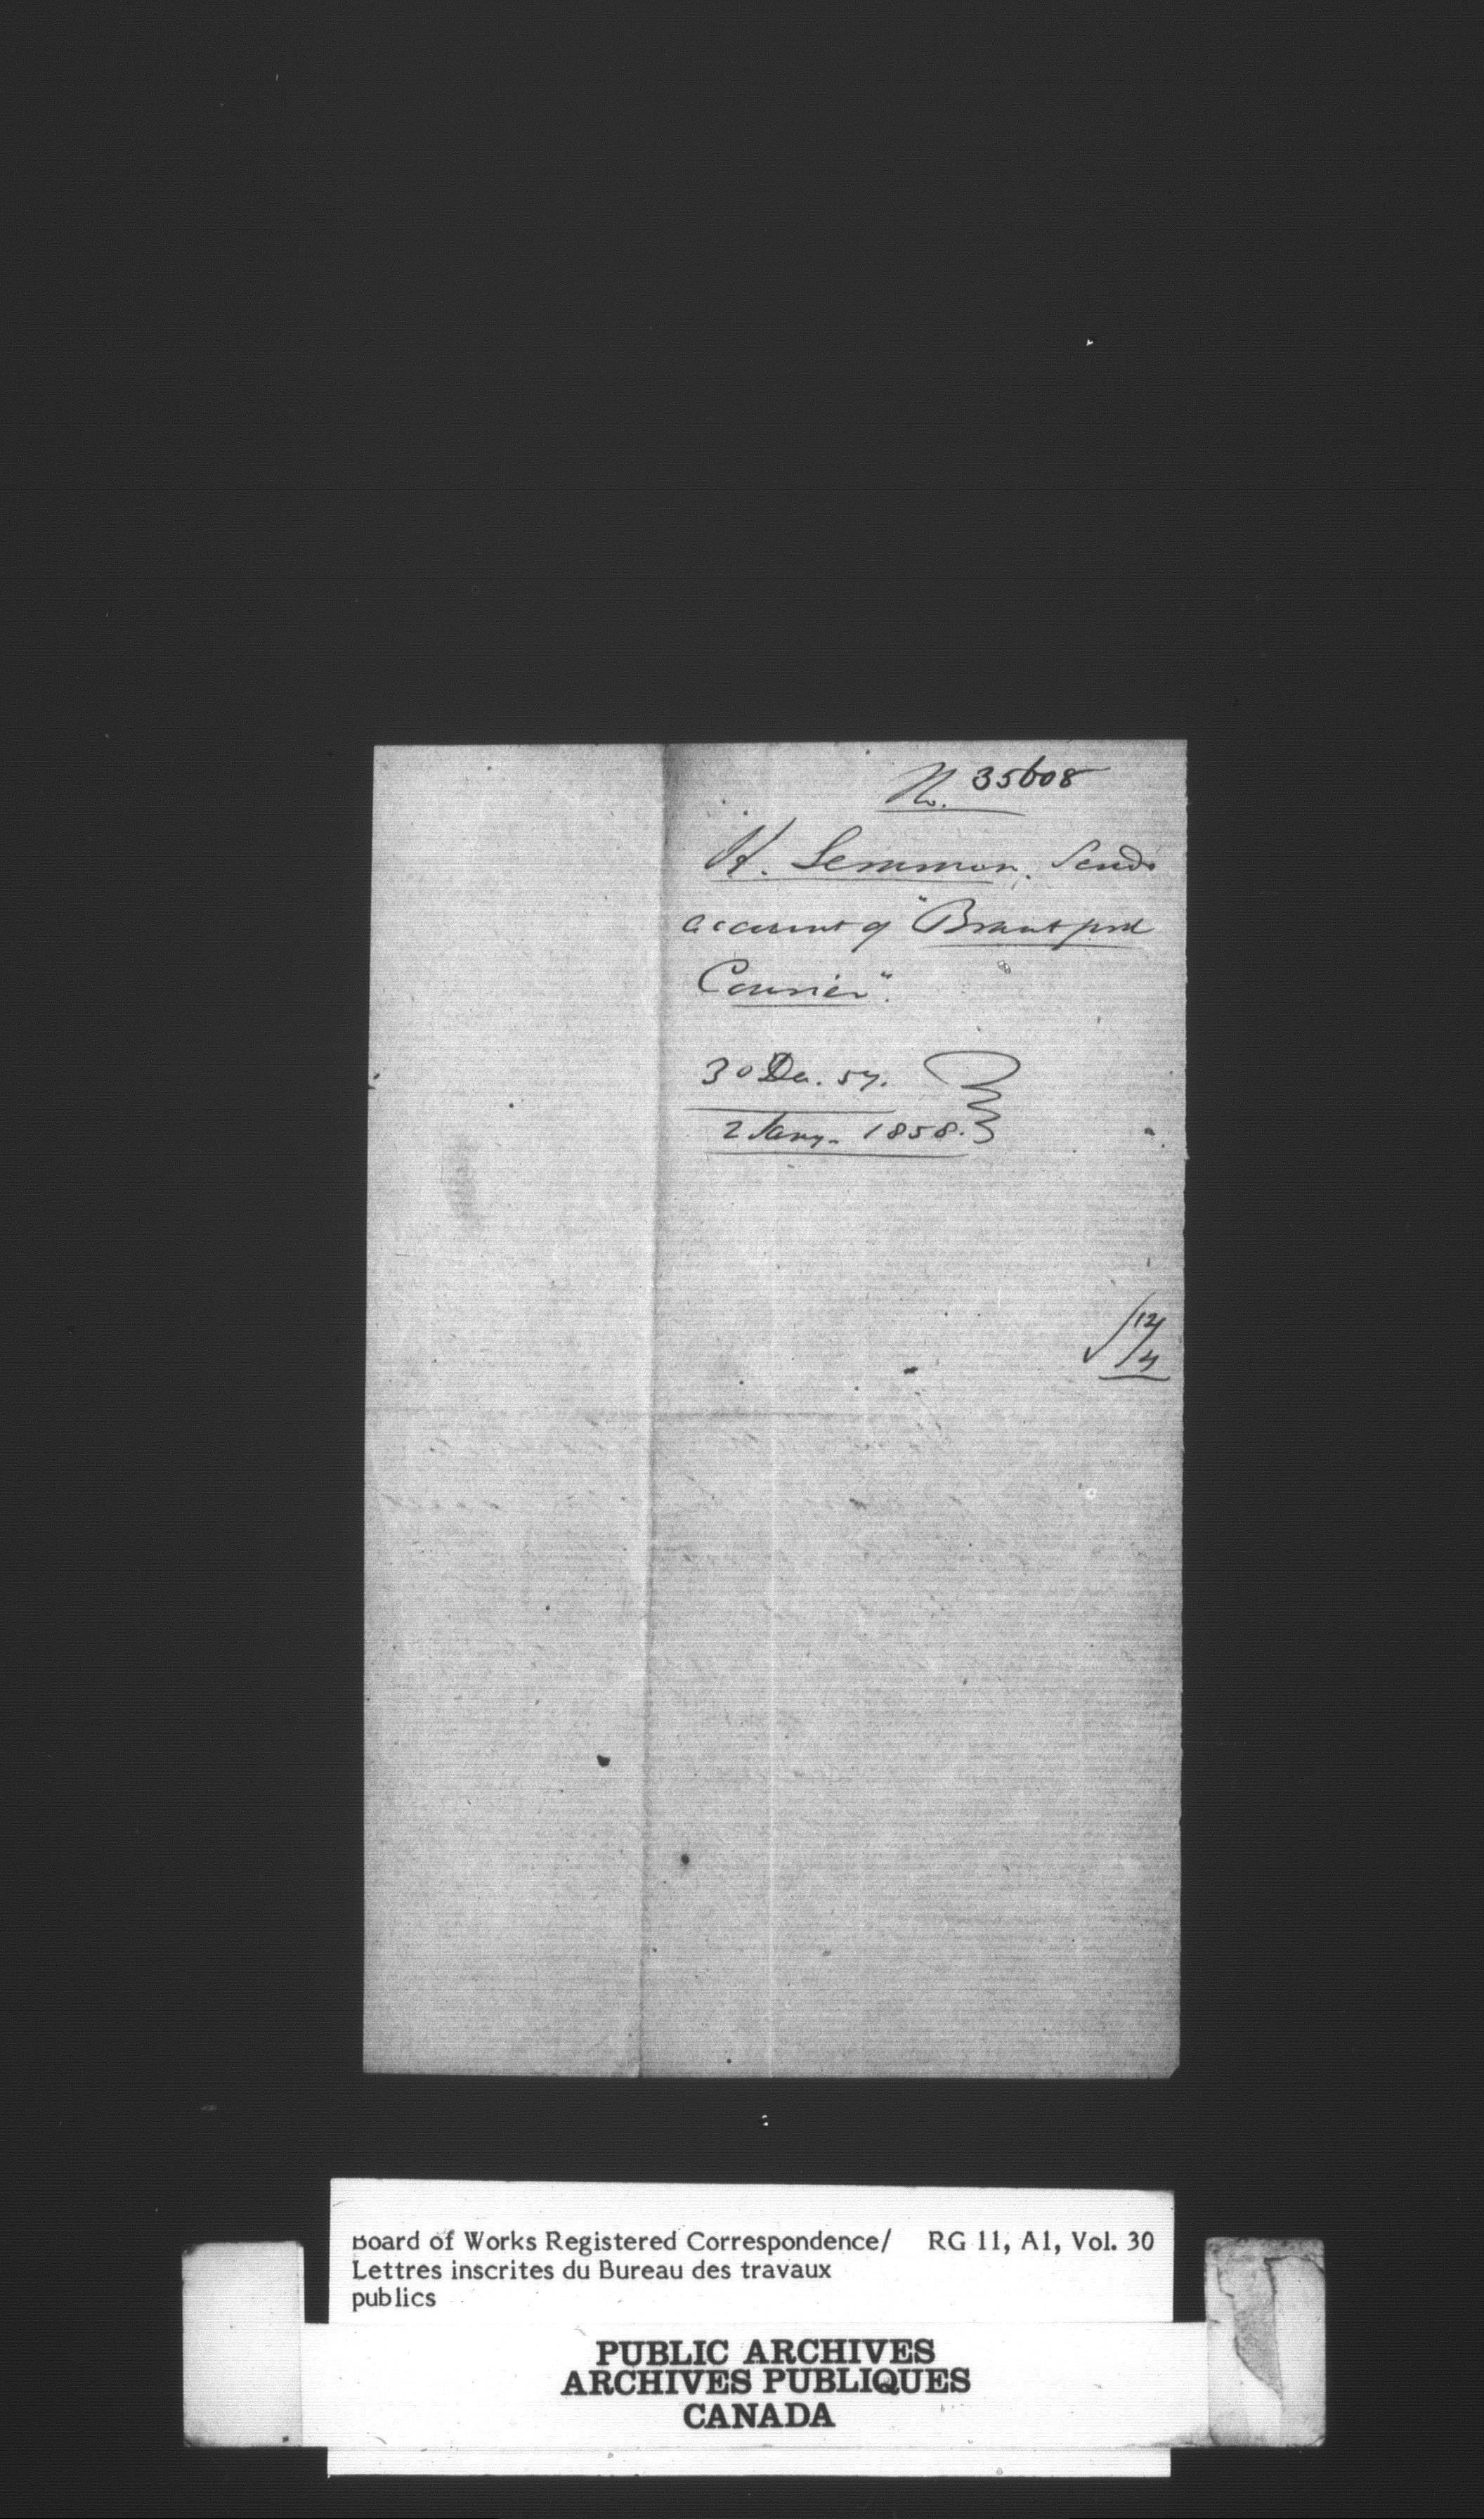 No. 35608
H. Lemmon. Sends
account of "Brantford
Courier".
30 Dec. 57.
2 Jany. 1858.
Board of Works Registered Correspondence/ RG 11, A1, Vol. 30
Lettres inscrites du Bureau des travaux
publics
PUBLIC ARCHIVES
ARCHIVES PUBLIQUES
CANADA